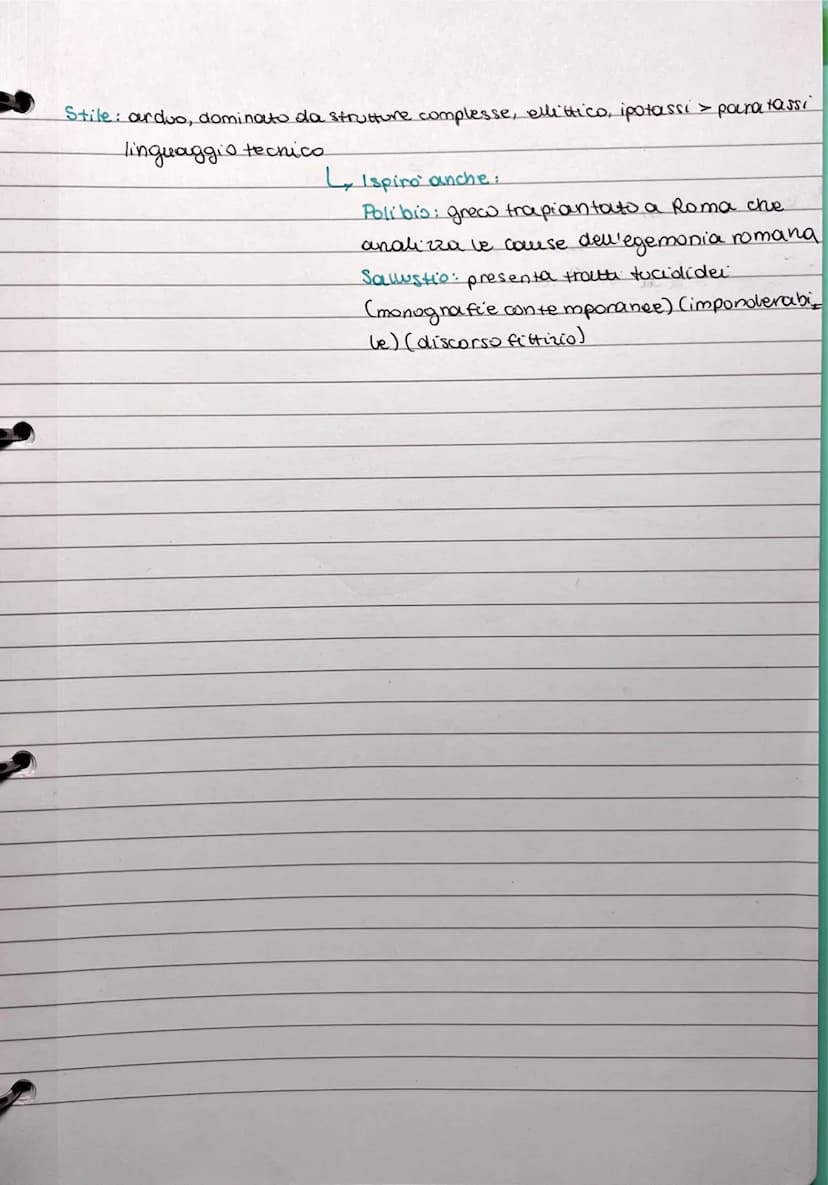 Stile: arduo, dominato da strutture complesse, ellittico, ipotassi > paratassi
linguaggio tecnico
↳ Ispirò anche:
Polibio: greco trapiantato a Roma che
analizza le cause dell'egemonia romana
Sallustio: presenta tratti tucididei
(monografie contemporanee) (imponderabi-
le) (discorso fittizio)